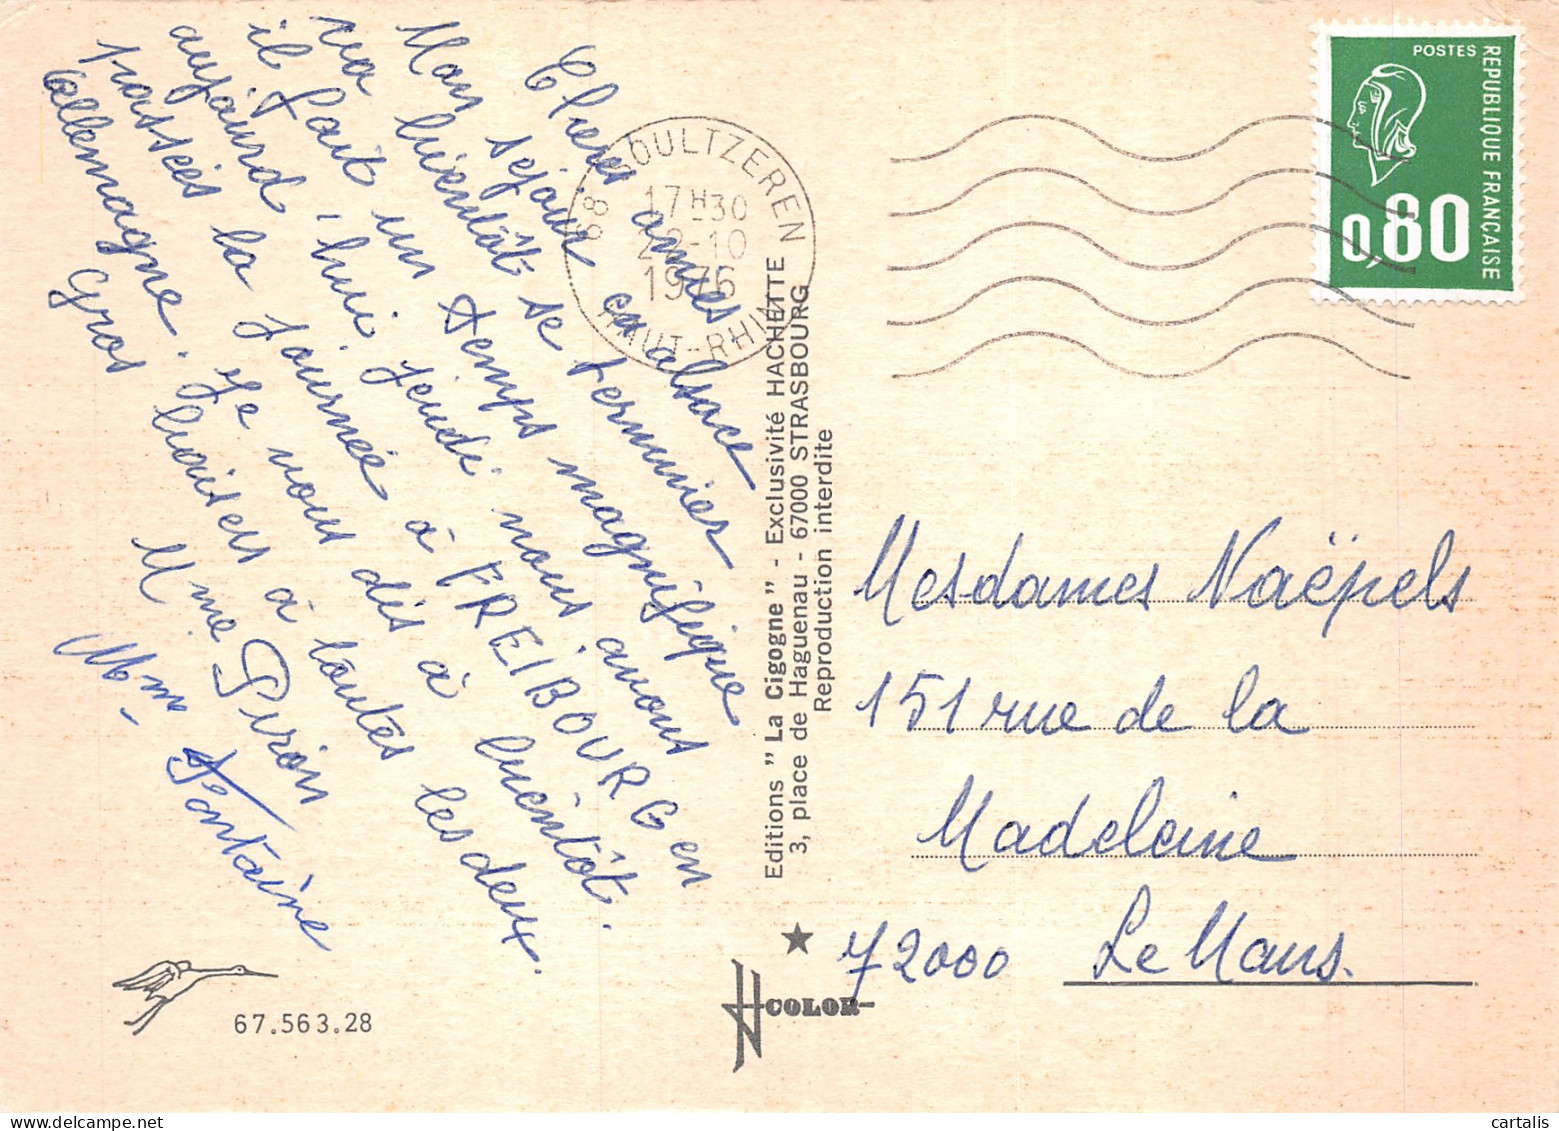 Chères amies
Mon séjour en alsace
va bientôt se terminer
il fait un temps magnifique
aujourd'hui jeudi nous avons
passées la journée à FREIBOURG en
allemagne. Je vous dis à bientôt.
Gros baisers à toutes les deux.
Mme Piron
Mme Fontaine
67.563.28
68 SOULTZEREN
17H30
22-10
1976
HAUT-RHIN
Editions " La Cigogne " - Exclusivité HACHETTE
3, place de Haguenau - 67000 STRASBOURG
Reproduction interdite
COLOR
POSTES
REPUBLIQUE FRANÇAISE
0,80
Mesdames Naëpels
151 rue de la
Madeleine
72000 Le Mans.
cartalis